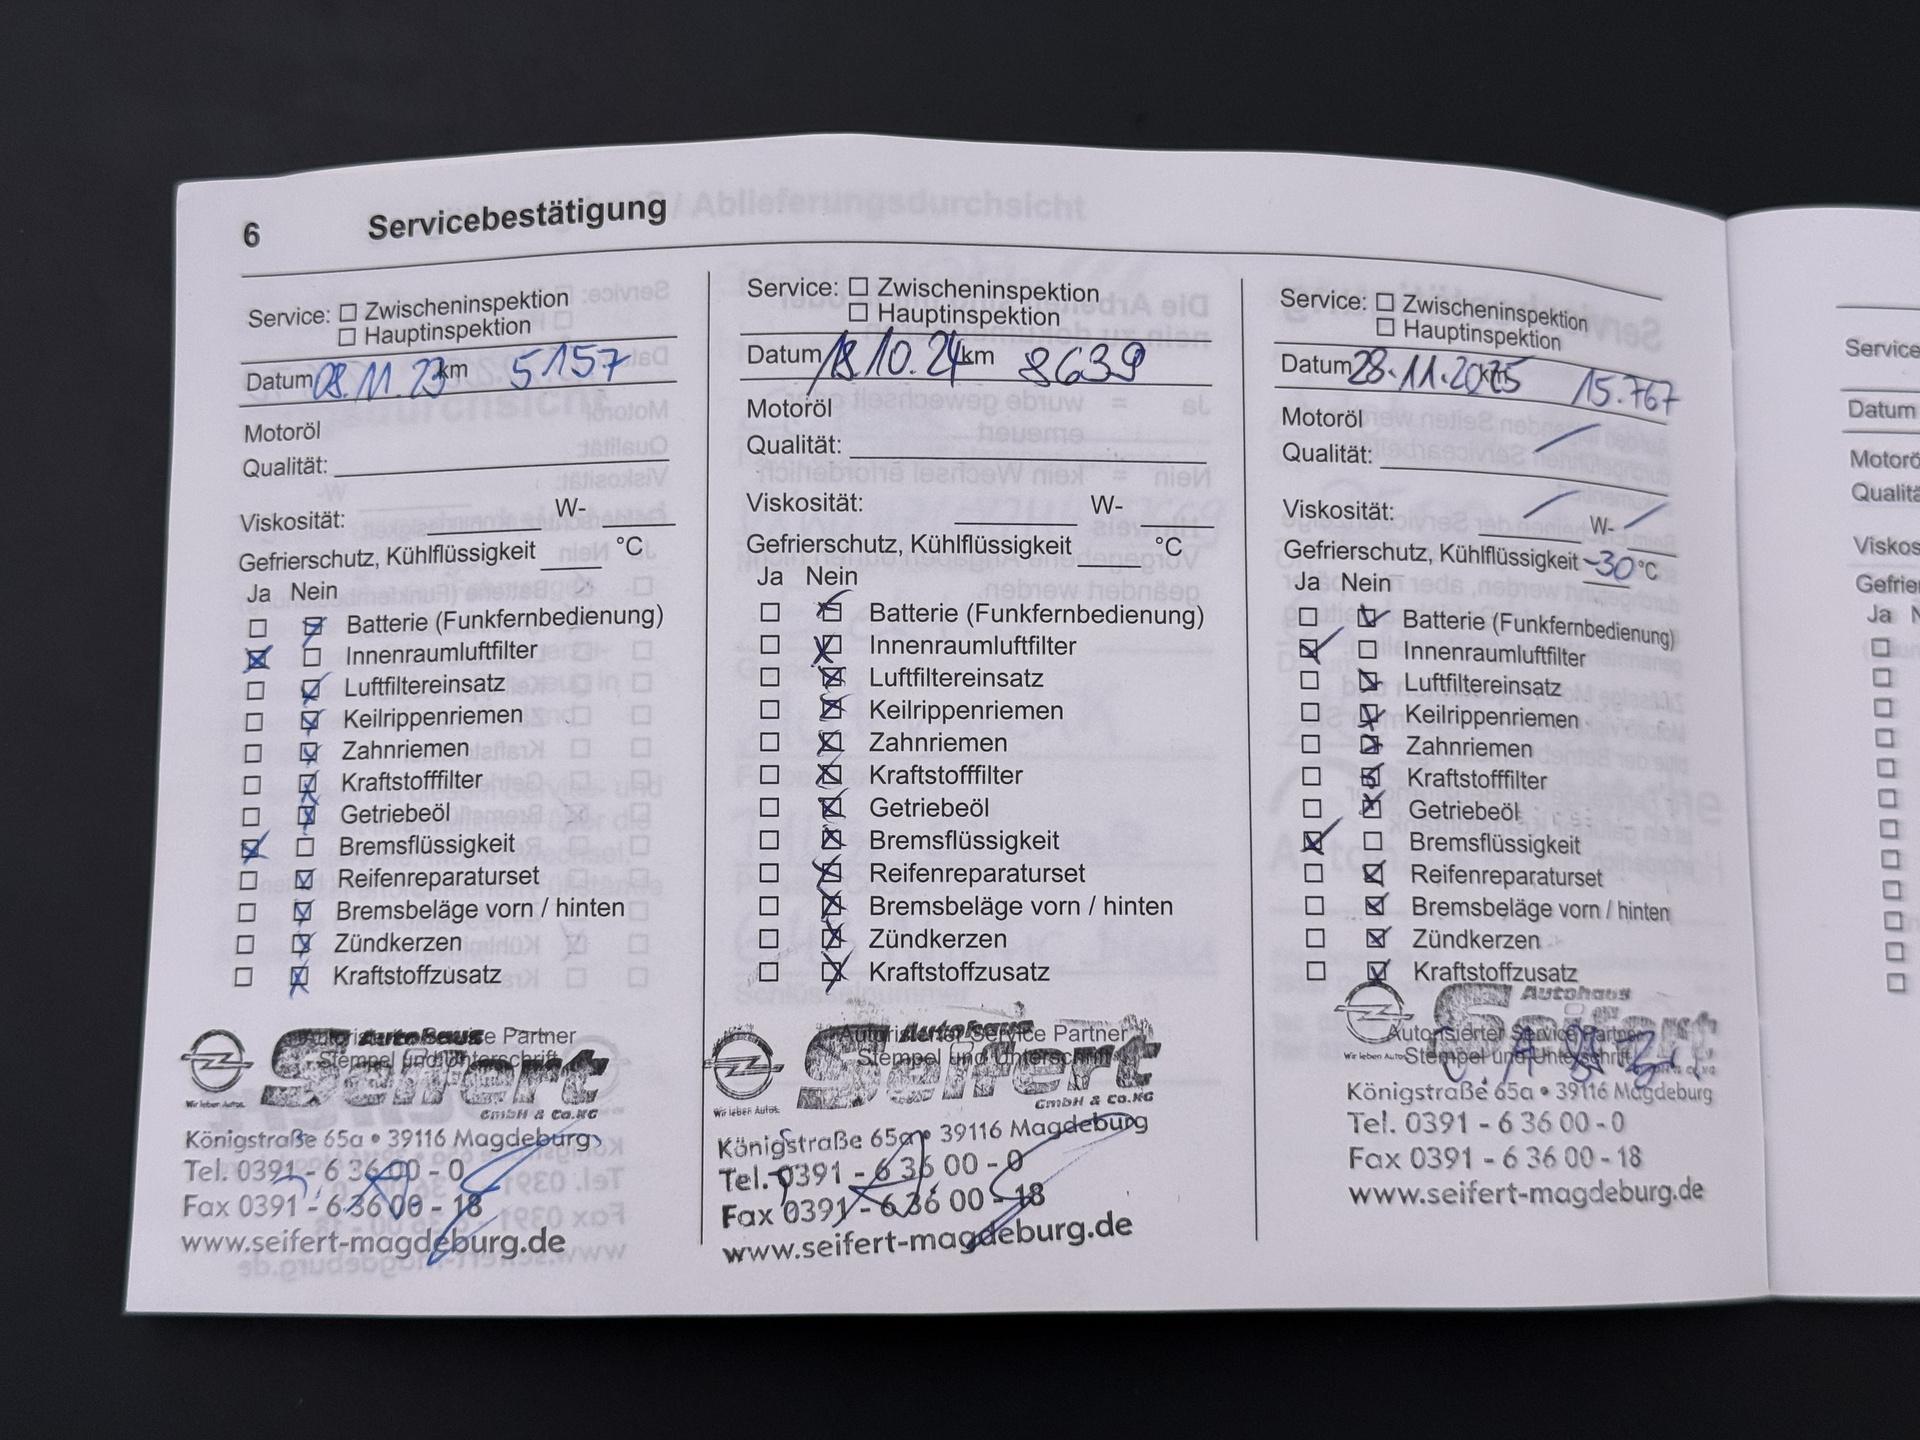 6 Servicebestätigung
Service: ☐ Zwischeninspektion
☐ Hauptinspektion
Datum 08.11.23 km 5157
Motoröl
Qualität:
Viskosität: W-
Gefrierschutz, Kühlflüssigkeit °C
Ja Nein
☐ ☒ Batterie (Funkfernbedienung)
☒ ☐ Innenraumluftfilter
☐ ☒ Luftfiltereinsatz
☐ ☒ Keilrippenriemen
☐ ☒ Zahnriemen
☐ ☒ Kraftstofffilter
☐ ☒ Getriebeöl
☒ ☐ Bremsflüssigkeit
☐ ☒ Reifenreparaturset
☐ ☒ Bremsbeläge vorn / hinten
☐ ☒ Zündkerzen
☐ ☒ Kraftstoffzusatz
Autorisierter Service Partner
Stempel und Unterschrift
Autohaus
Seifert
GmbH & Co.KG
Wir leben Autos.
Königstraße 65a • 39116 Magdeburg
Tel. 0391 - 6 36 00 - 0
Fax 0391 - 6 36 00 - 18
www.seifert-magdeburg.de
Service: ☐ Zwischeninspektion
☐ Hauptinspektion
Datum 18.10.24 km 8639
Motoröl
Qualität:
Viskosität: W-
Gefrierschutz, Kühlflüssigkeit °C
Ja Nein
☐ ☒ Batterie (Funkfernbedienung)
☐ ☒ Innenraumluftfilter
☐ ☒ Luftfiltereinsatz
☐ ☒ Keilrippenriemen
☐ ☒ Zahnriemen
☐ ☒ Kraftstofffilter
☐ ☒ Getriebeöl
☐ ☒ Bremsflüssigkeit
☐ ☒ Reifenreparaturset
☐ ☒ Bremsbeläge vorn / hinten
☐ ☒ Zündkerzen
☐ ☒ Kraftstoffzusatz
Autorisierter Service Partner
Stempel und Unterschrift
Autohaus
Seifert
GmbH & Co.KG
Wir leben Autos.
Königstraße 65a • 39116 Magdeburg
Tel. 0391 - 6 36 00 - 0
Fax 0391 - 6 36 00 - 18
www.seifert-magdeburg.de
Service: ☐ Zwischeninspektion
☐ Hauptinspektion
Datum 28.11.2025 km 15.767
Motoröl
Qualität: /
Viskosität: / W- /
Gefrierschutz, Kühlflüssigkeit -30 °C
Ja Nein
☐ ☒ Batterie (Funkfernbedienung)
☒ ☐ Innenraumluftfilter
☐ ☒ Luftfiltereinsatz
☐ ☒ Keilrippenriemen
☐ ☒ Zahnriemen
☐ ☒ Kraftstofffilter
☐ ☒ Getriebeöl
☒ ☐ Bremsflüssigkeit
☐ ☒ Reifenreparaturset
☐ ☒ Bremsbeläge vorn / hinten
☐ ☒ Zündkerzen
☐ ☒ Kraftstoffzusatz
Autohaus
Seifert
Autorisierter Service Partner
Wir leben Autos.
Stempel und Unterschrift
Königstraße 65a • 39116 Magdeburg
Tel. 0391 - 6 36 00 - 0
Fax 0391 - 6 36 00 - 18
www.seifert-magdeburg.de
Service
Datum
Ja